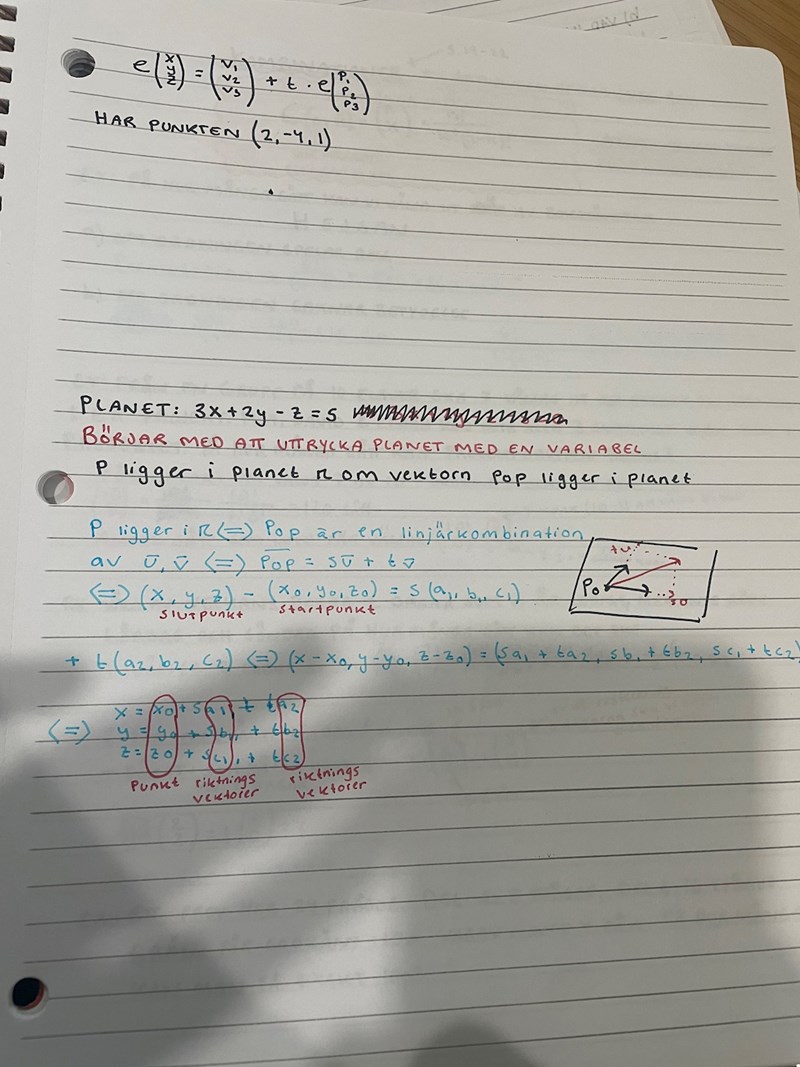 e(x y z) = (v₁ v₂ v₃) + t · e(p₁ p₂ p₃)
HAR PUNKTEN (2,-4,1)
PLANET: 3x+2y-z=5
BÖRJAR MED ATT UTTRYCKA PLANET MED EN VARIABEL
P ligger i planet π om vektorn PoP ligger i planet
P ligger i π <=> PoP är en linjärkombination
av ū, v̄ <=> PoP = sū + tv̄
<=> (x, y, z) - (x₀, y₀, z₀) = s(a₁, b₁, c₁)
slutpunkt startpunkt
tv
Po
sū
+ t(a₂, b₂, c₂) <=> (x-x₀, y-y₀, z-z₀) = (sa₁ + ta₂, sb₁ + tb₂, sc₁ + tc₂)
x = x₀ + sa₁ + ta₂
<=> y = y₀ + sb₁ + tb₂
z = z₀ + sc₁ + tc₂
Punkt riktnings vektorer riktnings vektorer